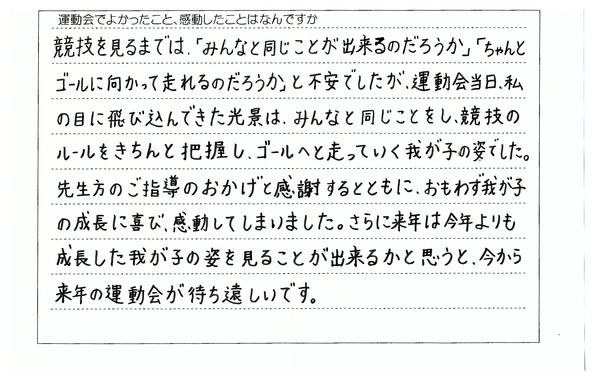 運動会でよかったこと、感動したことはなんですか
競技を見るまでは、「みんなと同じことが出来るのだろうか」「ちゃんと
ゴールに向かって走れるのだろうか」と不安でしたが、運動会当日、私
の目に飛び込んできた光景は、みんなと同じことをし、競技の
ルールをきちんと把握し、ゴールへと走っていく我が子の姿でした。
先生方のご指導のおかげと感謝するとともに、おもわず我が子
の成長に喜び、感動してしまいました。さらに来年は今年よりも
成長した我が子の姿を見ることが出来るかと思うと、今から
来年の運動会が待ち遠しいです。